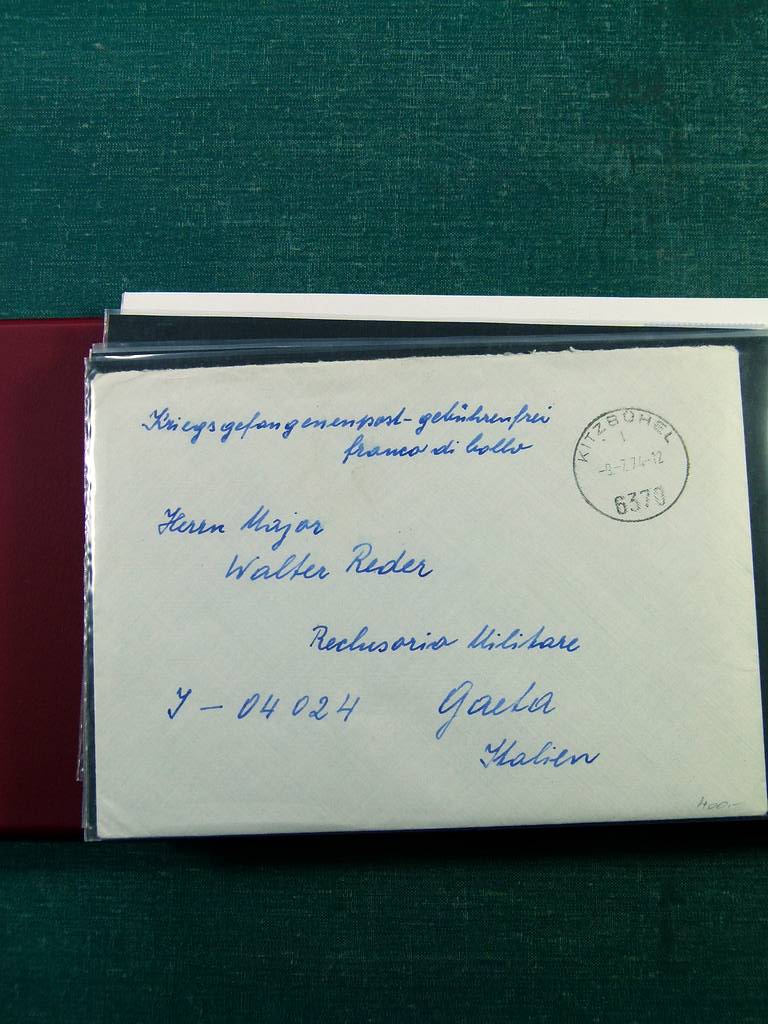 Kriegsgefangenenpost-gebührenfrei
franco di bollo
KITZBÜHEL
1
-8.-7.74-12
6370
Herrn Major
Walter Reder
Reclusorio Militare
I - 04024 Gaeta
Italien
400,-